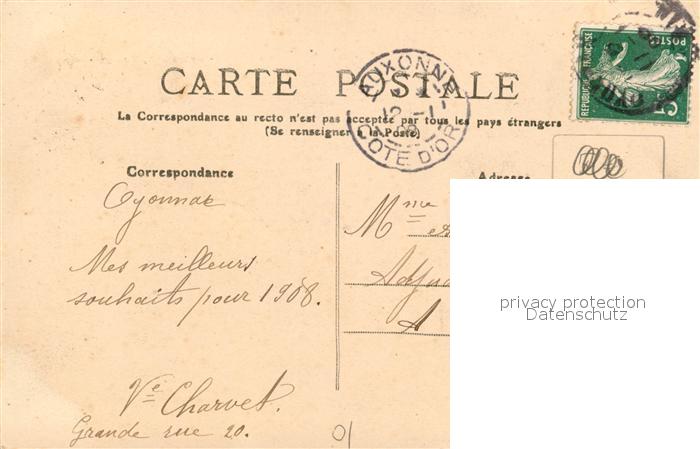 CARTE POSTALE
La Correspondance au recto n'est pas acceptée par tous les pays étrangers
(Se renseigner à la Poste)
AUXONNE
12 -1
08
COTE D'OR
REPUBLIQUE FRANÇAISE
POSTES
5c
Correspondance
Adresse
Oyonnax
Mes meilleurs
souhaits pour 1908.
Vve Charvet.
Grande rue 20.
Mme
A
privacy protection
Datenschutz